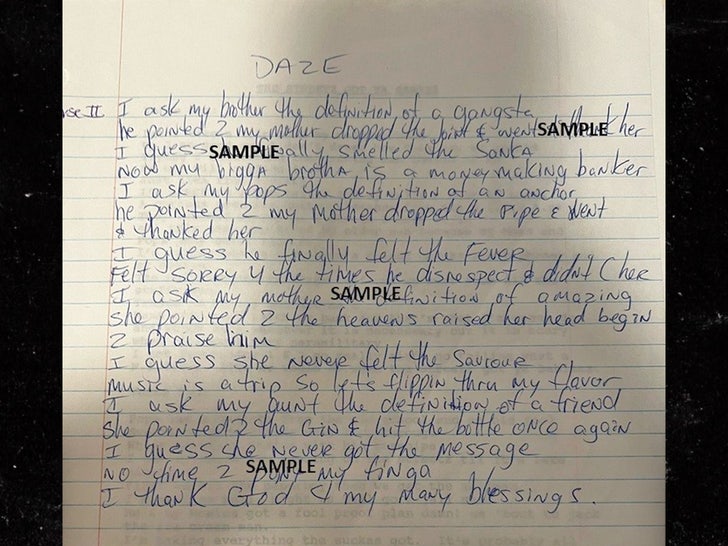 DAZE
se II I ask my brother the definition of a gangsta
he pointed 2 my mother dropped the joint & went SAMPLE her
I guess SAMPLE ally smelled the Sanka
now my bigga brotha is a money making banker
I ask my pops the definition of an anchor
he pointed 2 my Mother dropped the Pipe & went
& thanked her
I guess he finally felt the Fever
Felt SORRY 4 the times he disrespect & didnt C her
I ask my mother SAMPLE definition of amazing
she pointed 2 the heavens raised her head begin
2 praise him
I guess she never felt the Saviour
music is a trip So lets flippin thru my flavor
I ask my aunt the definition of a friend
she pointed 2 the Gin & hit the bottle once again
I guess she never got the message
NO time 2 SAMPLE my finga
I thank God 4 my many blessings.